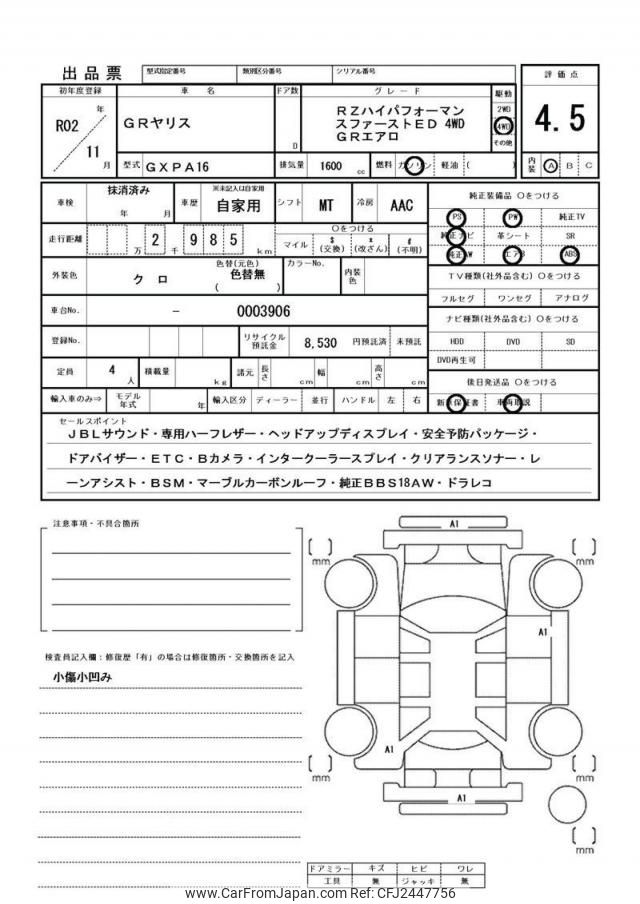 出品票 型式指定番号 類別区分番号 シリアル番号 評価点
初年度登録 車名 ドア数 グレード 駆動
R02 年 GRヤリス RZハイパフォーマン 2WD 4.5
スファーストED 4WD 4WD
11 月 D GRエアロ その他
型式 GXPA16 排気量 1600 cc 燃料 ガソリン 軽油 ( ) 内装 A B C
車検 抹消済み 年 月 車歴 ※未記入は自家用 自家用 シフト MT 冷房 AAC 純正装備品 ○をつける
PS PW 純正TV
走行距離 万 2 千 9 8 5 km ○をつける 純正ナビ 革シート SR
マイル $ (交換) x (改ざん) # (不明) 純正AW エアB ABS
外装色 クロ 色替(元色) 色替無 ( ) カラーNo. 内装色 TV種類(社外品含む) ○をつける
フルセグ ワンセグ アナログ
車台No. − 0003906 ナビ種類(社外品含む) ○をつける
登録No. リサイクル預託金 8,530 円預託済 未預託 HDD DVD SD
DVD再生可
定員 4 人 積載量 kg 諸元 長さ cm 幅 cm 高さ cm 後日発送品 ○をつける
輸入車のみ⇒ モデル年式 年 輸入区分 ディーラー 並行 ハンドル 左 右 新車保証書 車両取説
セールスポイント
JBLサウンド・専用ハーフレザー・ヘッドアップディスプレイ・安全予防パッケージ・
ドアバイザー・ETC・Bカメラ・インタークーラースプレイ・クリアランスソナー・レ
ーンアシスト・BSM・マーブルカーボンルーフ・純正BBS18AW・ドラレコ
注意事項・不具合箇所
A1
mm mm
A1
検査員記入欄:修復歴「有」の場合は修復箇所・交換箇所を記入
小傷小凹み
A1
mm mm
A1
mm
ドアミラー キズ ヒビ ワレ
工具 無 ジャッキ 無
www.CarFromJapan.com Ref: CFJ2447756